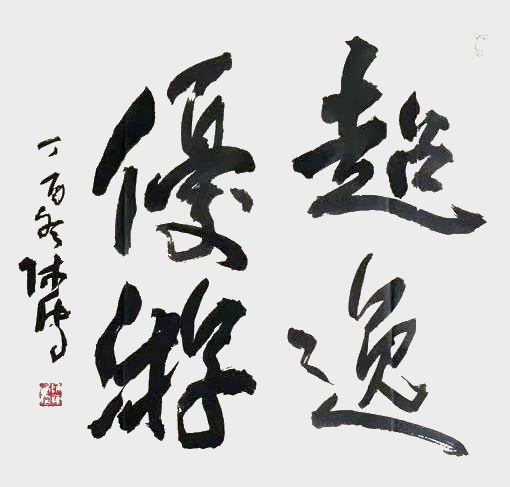 超逸
優游
丁酉冬